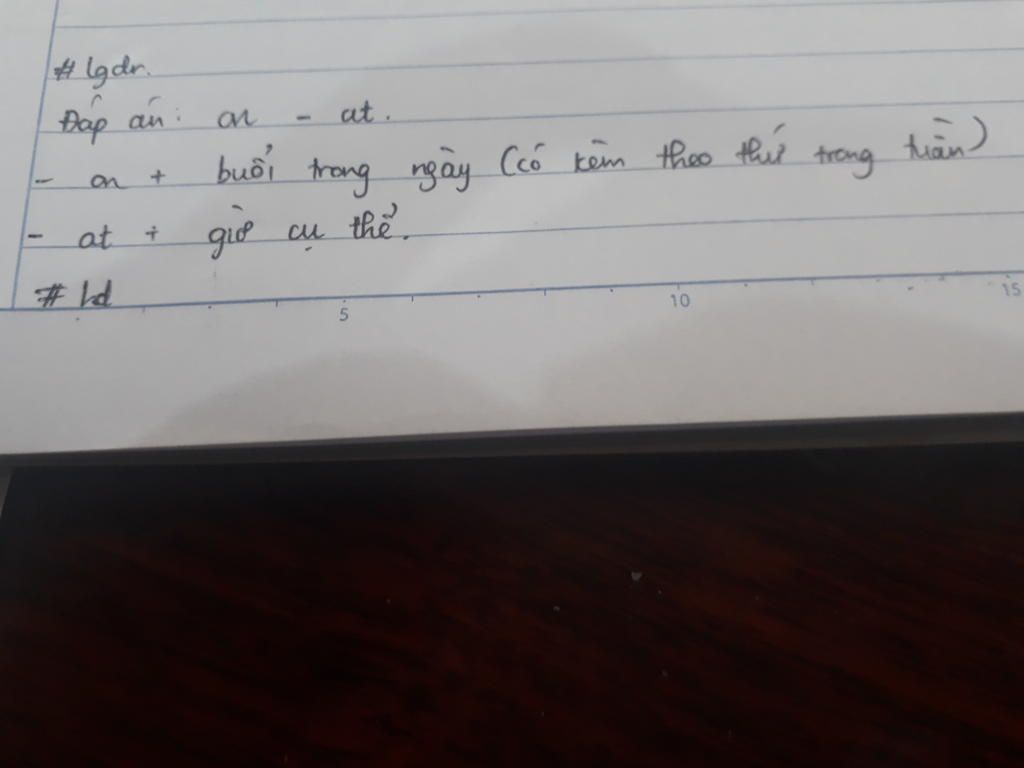 # lgdr.
Đáp án: on - at.
- on + buổi trong ngày (có kèm theo thứ trong tuần)
- at + giờ cụ thể.
# hd
5 10 15